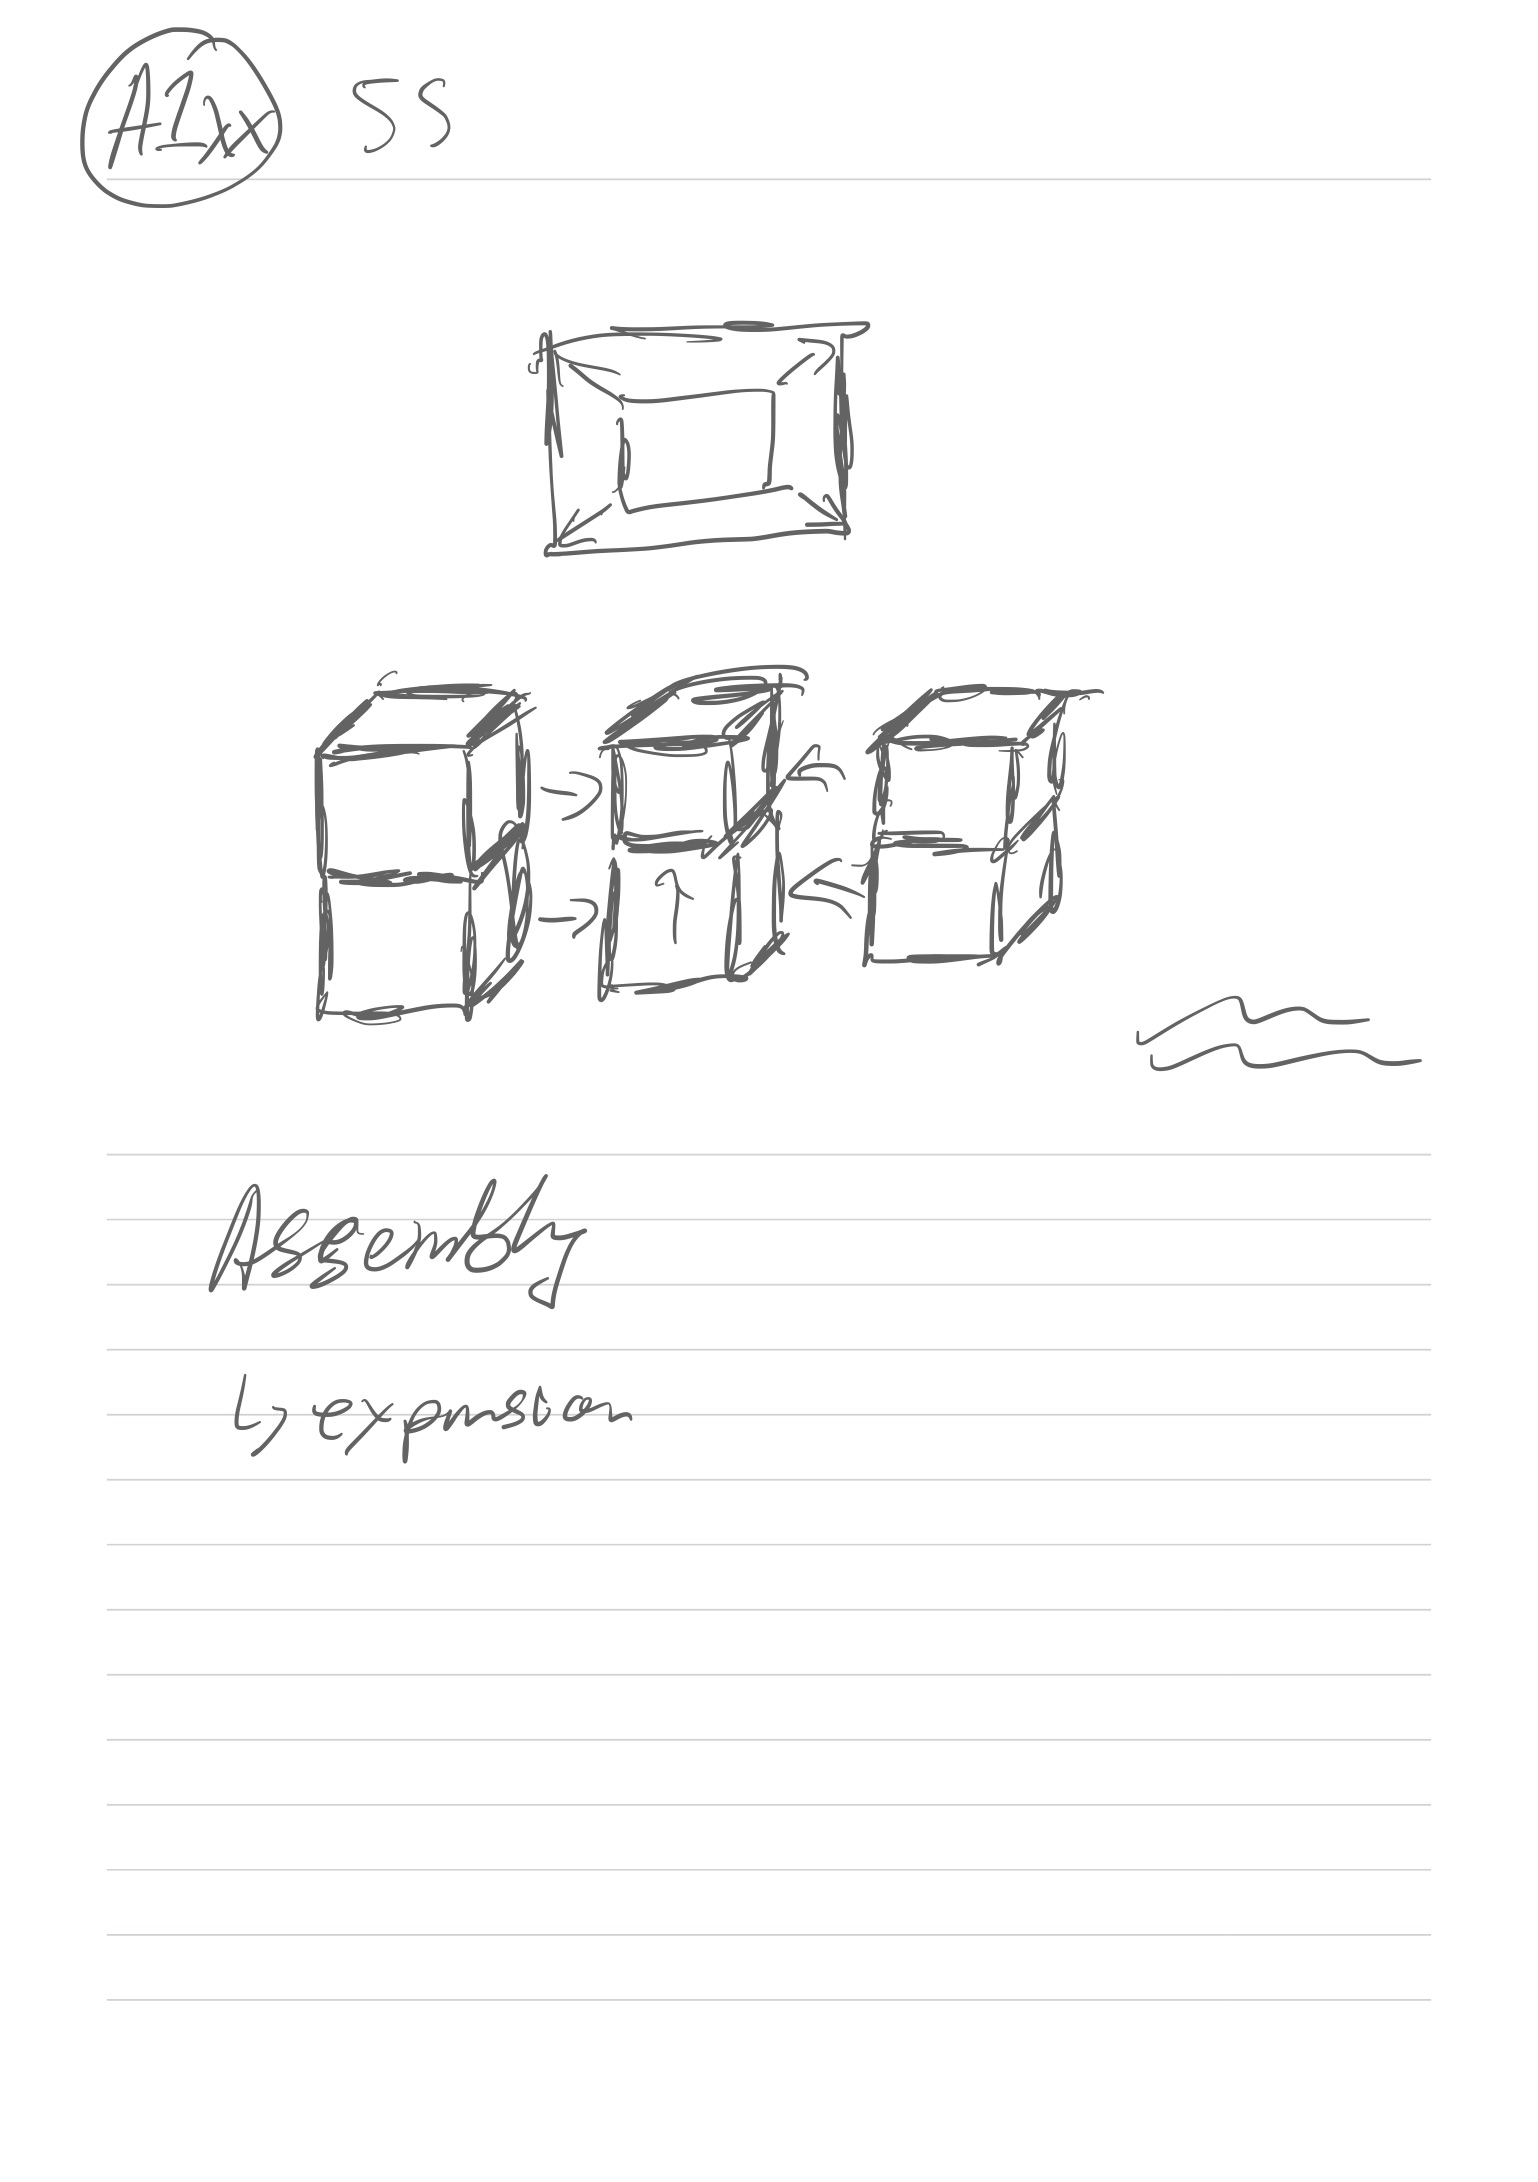 A1xx 5S
Assembly
↳ expansion